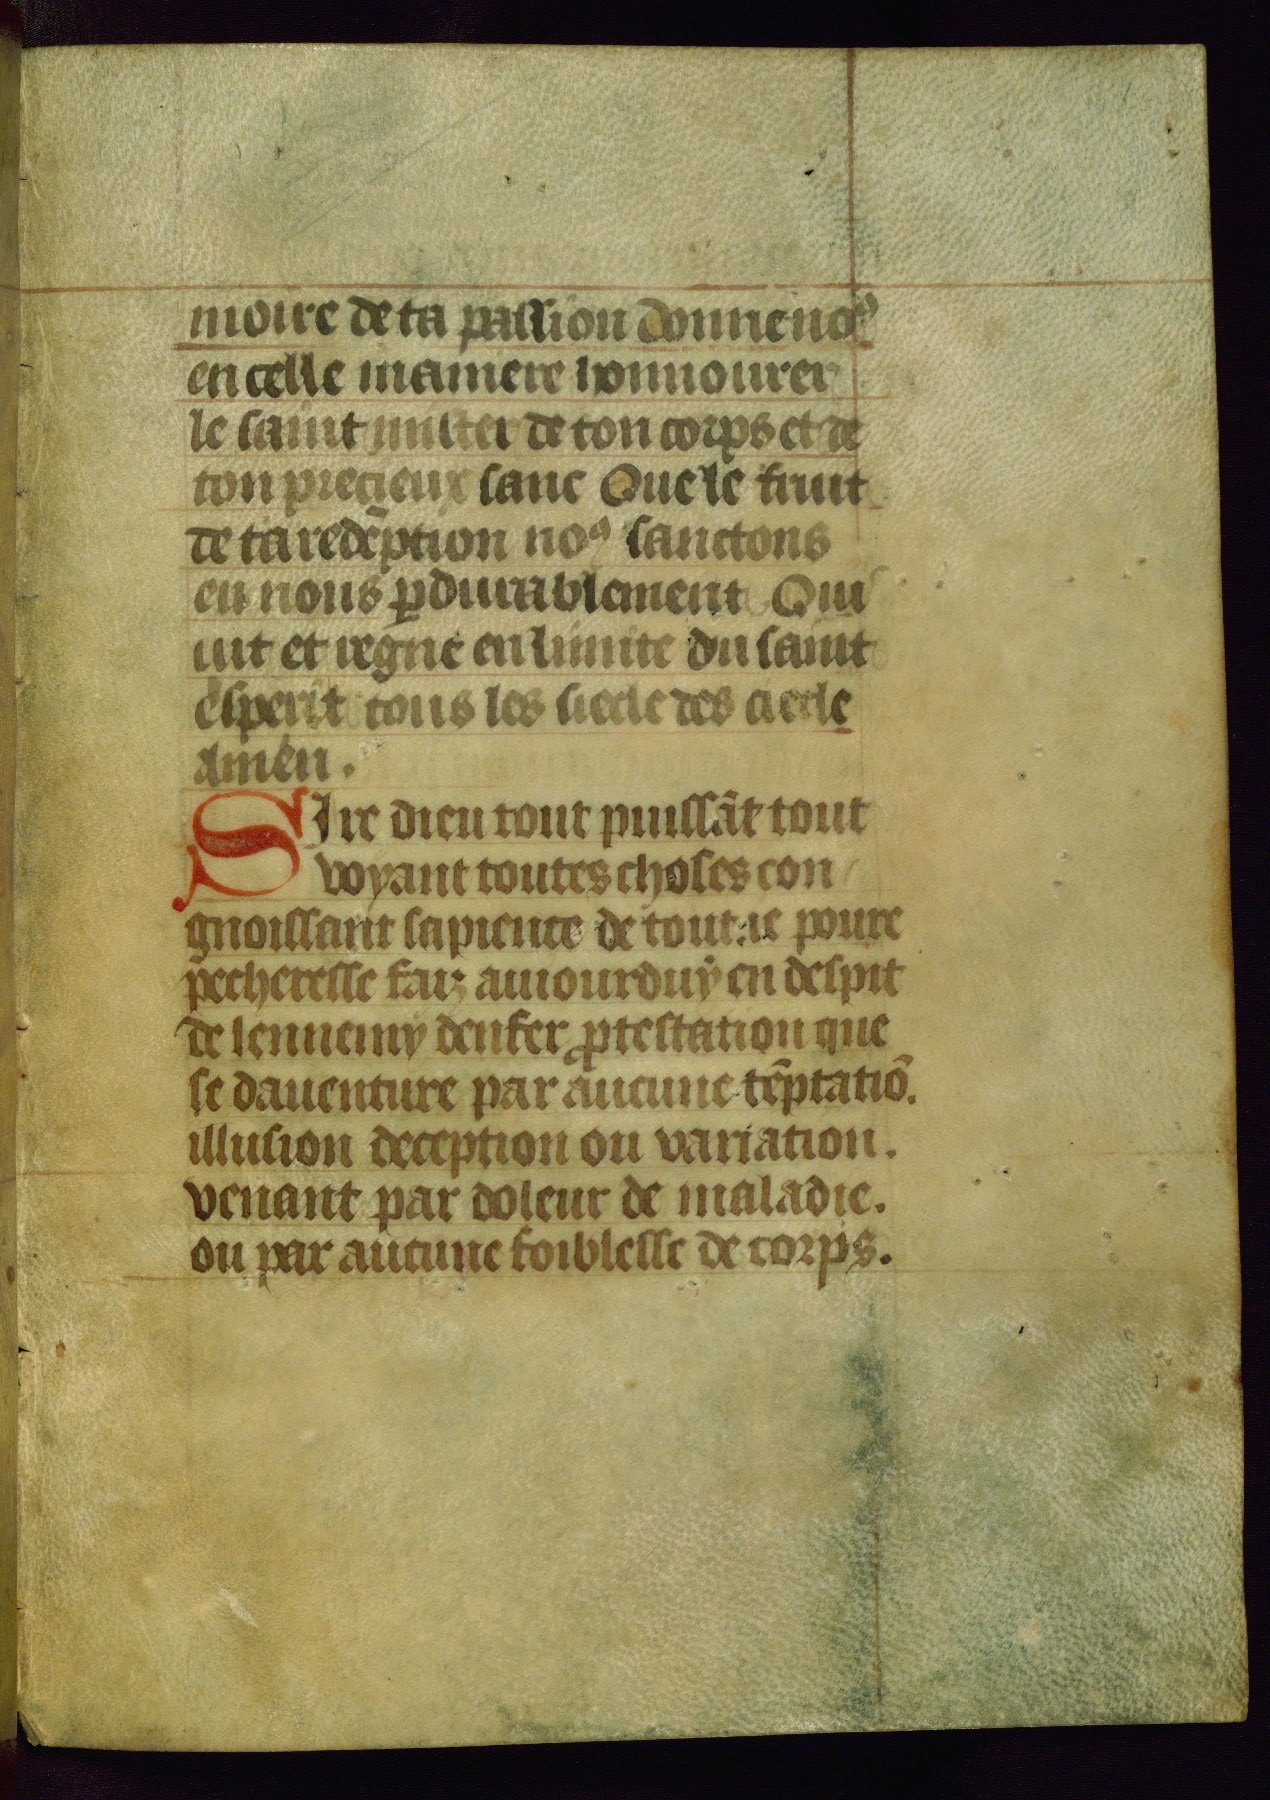 moire de ta passion donne noꝰ
en celle maniere honnourer
le saint mister de ton corps et de
ton precieux sanc Que le fruit
de ta redēption noꝰ sanctons
en nous ꝑdurablement Qui
uit et regne en lunite du saint
esperit tous les siecle des ciecle
amen.
SIre dieu tout puissāt tout
voyant toutes choses con
gnoissant sapience de tout. ie poure
pecheresse faiz auiourduy en despit
de lennemy denfer ꝓtestation que
se dauenture par aucune tēptatiō.
illusion deception ou variation.
venant par doleur de maladie.
ou par aucune foiblesse de corps.